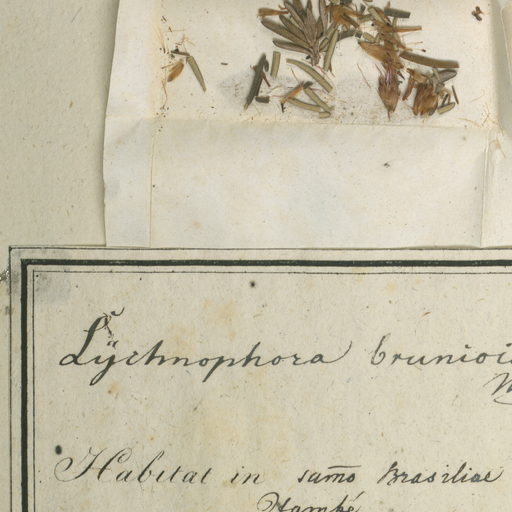 Lÿchnophora brunioi
M
Habitat in sum̄o Brasiliae
Itambé